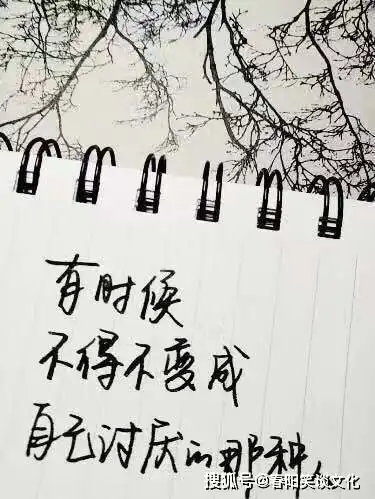 有时候
不得不变成
自己讨厌的那种人
搜狐号@春阳笑谈文化